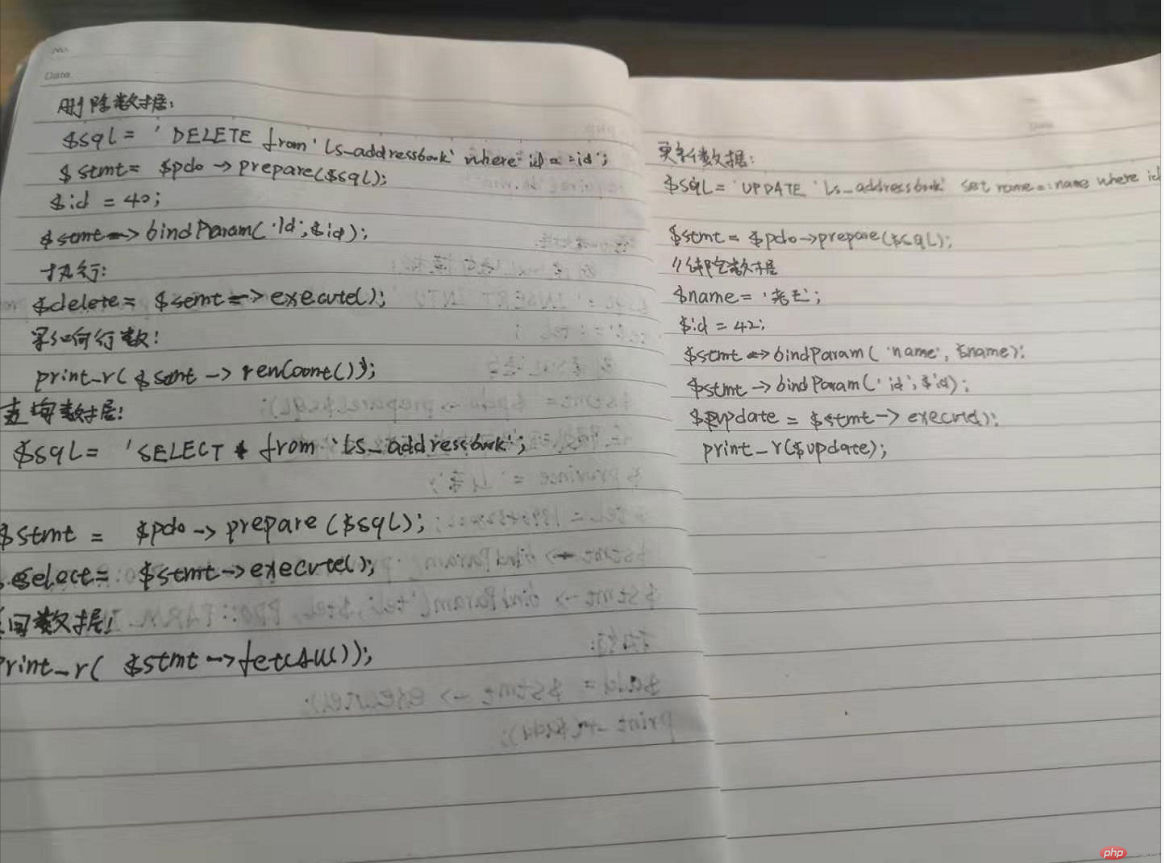 No.
Date
删除数据:
$sql = 'DELETE from 'ls_addressbook' where id = :id';
$stmt = $pdo -> prepare($sql);
$id = 40;
$stmt -> bindParam('id', $id);
执行:
$delete = $stmt -> execute();
行数:
print_r( $stmt -> ());
查询数据:
$sql = 'SELECT * from 'ls_addressbook';
$stmt = $pdo -> prepare($sql);
select = $stmt -> execute();
回数据!
rint_r( $stmt -> ());
更新数据:
$sql = 'UPDATE 'ls_addressbook' set name = :name where id
$stmt = $pdo -> prepare($sql);
//绑定数据
$name = '老王';
$id = 42;
$stmt -> bindParam( 'name', $name);
$stmt -> bindParam('id', $id);
$update = $stmt -> execute();
print_r($update);
php